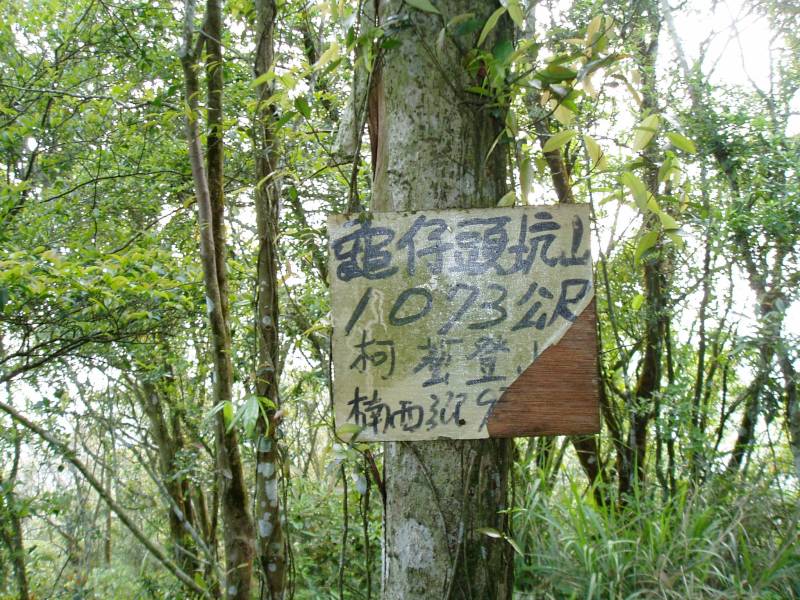 龜仔頭坑山
1073公尺
柯 登
楠西